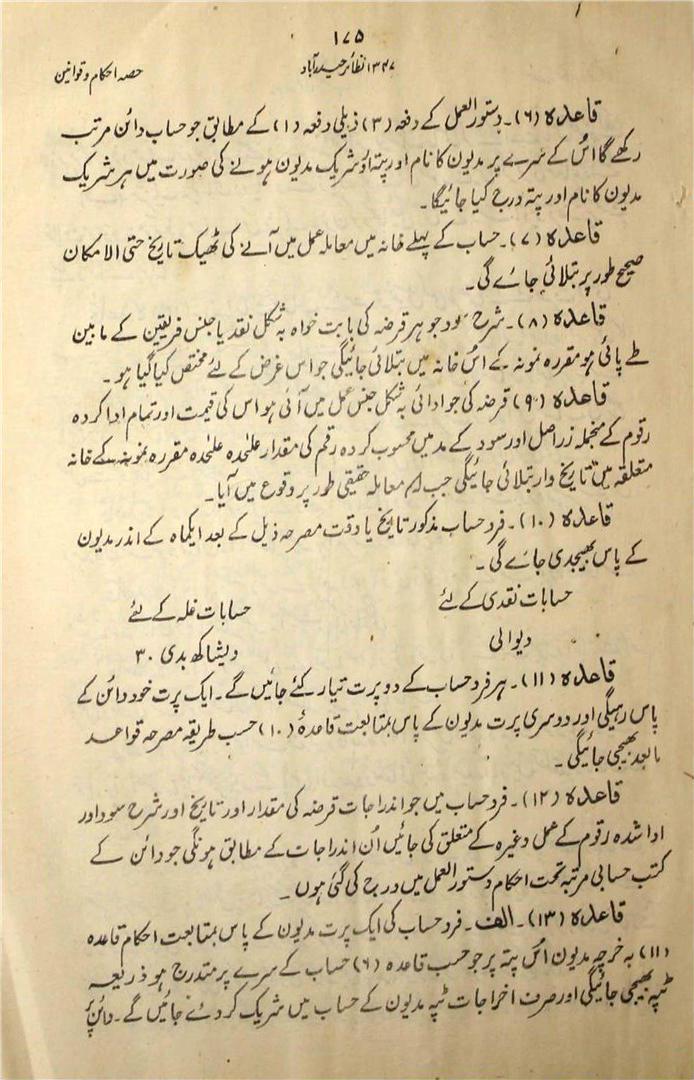 ۱۷۵
۱۳۴۷ نظائر حیدرآباد
حصہ احکام و قوانین
قاعدہ (۶)۔ دستور العمل کے دفعہ (۳) ذیلی دفعہ (۱) کے مطابق جو حساب دائن مرتب
رکھے گا اُس کے سرے پر مدیون کا نام اور پتہ اور شریک مدیون ہونے کی صورت میں ہر شریک
مدیون کا نام اور پتہ درج کیا جائیگا۔
قاعدہ (۷)۔ حساب کے پہلے خانہ میں معاملہ عمل میں آنے کی ٹھیک تاریخ حتی الامکان
صحیح طور پر بتلائی جائے گی۔
قاعدہ (۸)۔ شرح سود جو ہر قرضہ کی بابت خواہ بہ شکل نقد یا جنس فریقین کے مابین
طے پائی ہو مقررہ نمونہ کے اُس خانہ میں بتلائی جائیگی جو اس غرض کے لئے مختص کیا گیا ہو۔
قاعدہ (۹)۔ قرضہ کی جو ادائی بہ شکل جنس عمل میں آئی ہو اس کی قیمت اور تمام ادا کردہ
رقوم کے منجملہ زر اصل اور سود کے مد میں محسوب کردہ رقم کی مقدار علٰحدہ علٰحدہ مقررہ نمونہ کے خانہ
متعلقہ میں تاریخ وار بتلائی جائیگی جب کہ معاملہ حقیقی طور پر وقوع میں آیا۔
قاعدہ (۱۰)۔ فرد حساب مذکور تاریخ یا وقت مصرحہ ذیل کے بعد ایکماہ کے اندر مدیون
کے پاس بھیجدی جائے گی۔
حسابات نقدی کے لئے
حسابات غلہ کے لئے
دیوالی
ویشاکھ بدی ۳۰
قاعدہ (۱۱)۔ ہر فرد حساب کے دو پرت تیار کئے جائیں گے۔ ایک پرت خود دائن کے
پاس رہیگی اور دوسری پرت مدیون کے پاس بمتابعت قاعدۂ (۱۰) حسب طریقہ مصرحہ قواعد
مابعد بھیجی جائیگی۔
قاعدہ (۱۲)۔ فرد حساب میں جو اندراجات قرضہ کی مقدار اور تاریخ اور شرح سود اور
ادا شدہ رقوم کے عمل وغیرہ کے متعلق کی جائیں اُن اندراجات کے مطابق ہونگی جو دائن کے
کتب حسابی مرتبہ تحت احکام دستور العمل میں درج کی گئی ہوں۔
قاعدہ (۱۳)۔ الف۔ فرد حساب کی ایک پرت مدیون کے پاس بمتابعت احکام قاعدہ
(۱۱) بہ خرچہ مدیون اُس پتہ پر جو حسب قاعدہ (۶) حساب کے سرے پر مندرج ہو ذریعہ
ٹپہ بھیجی جائیگی اور صرف اخراجات ٹپہ مدیون کے حساب میں شریک کر دئے جائیں گے۔ دائن پر